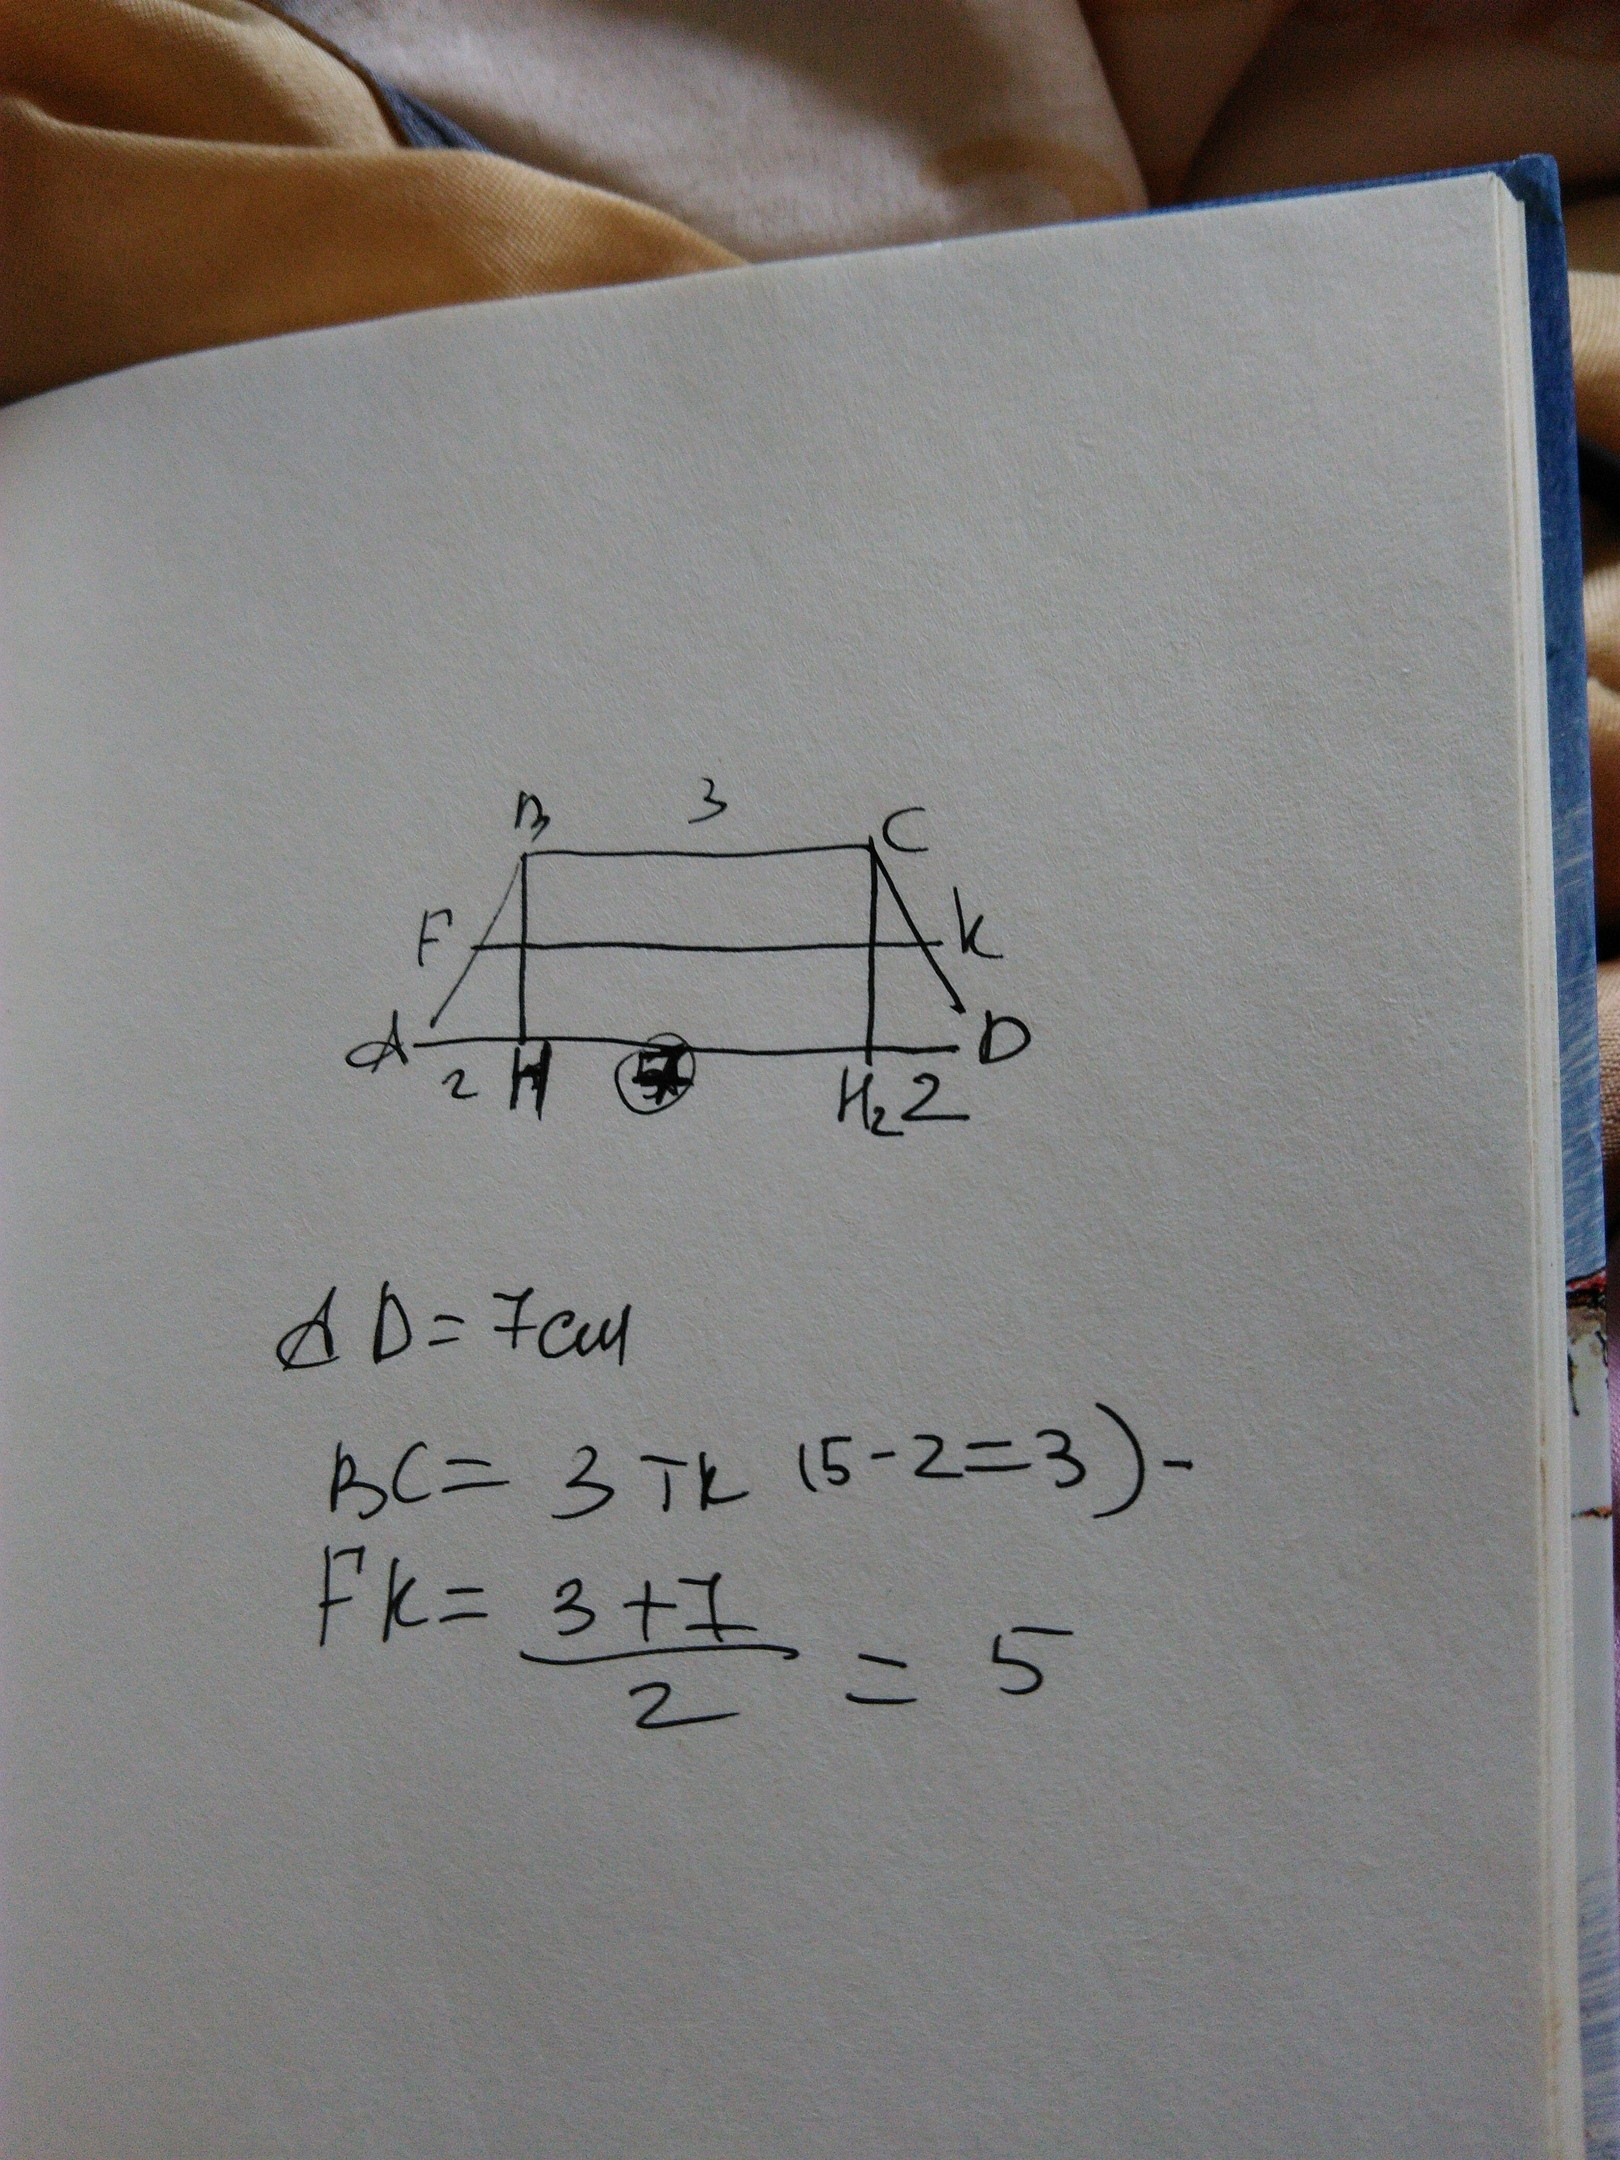 B 3 C
F K
A D
2 H H₂ 2
AD = 7см
BC = 3 тк (5-2=3) -
FK = 3+7
2 = 5